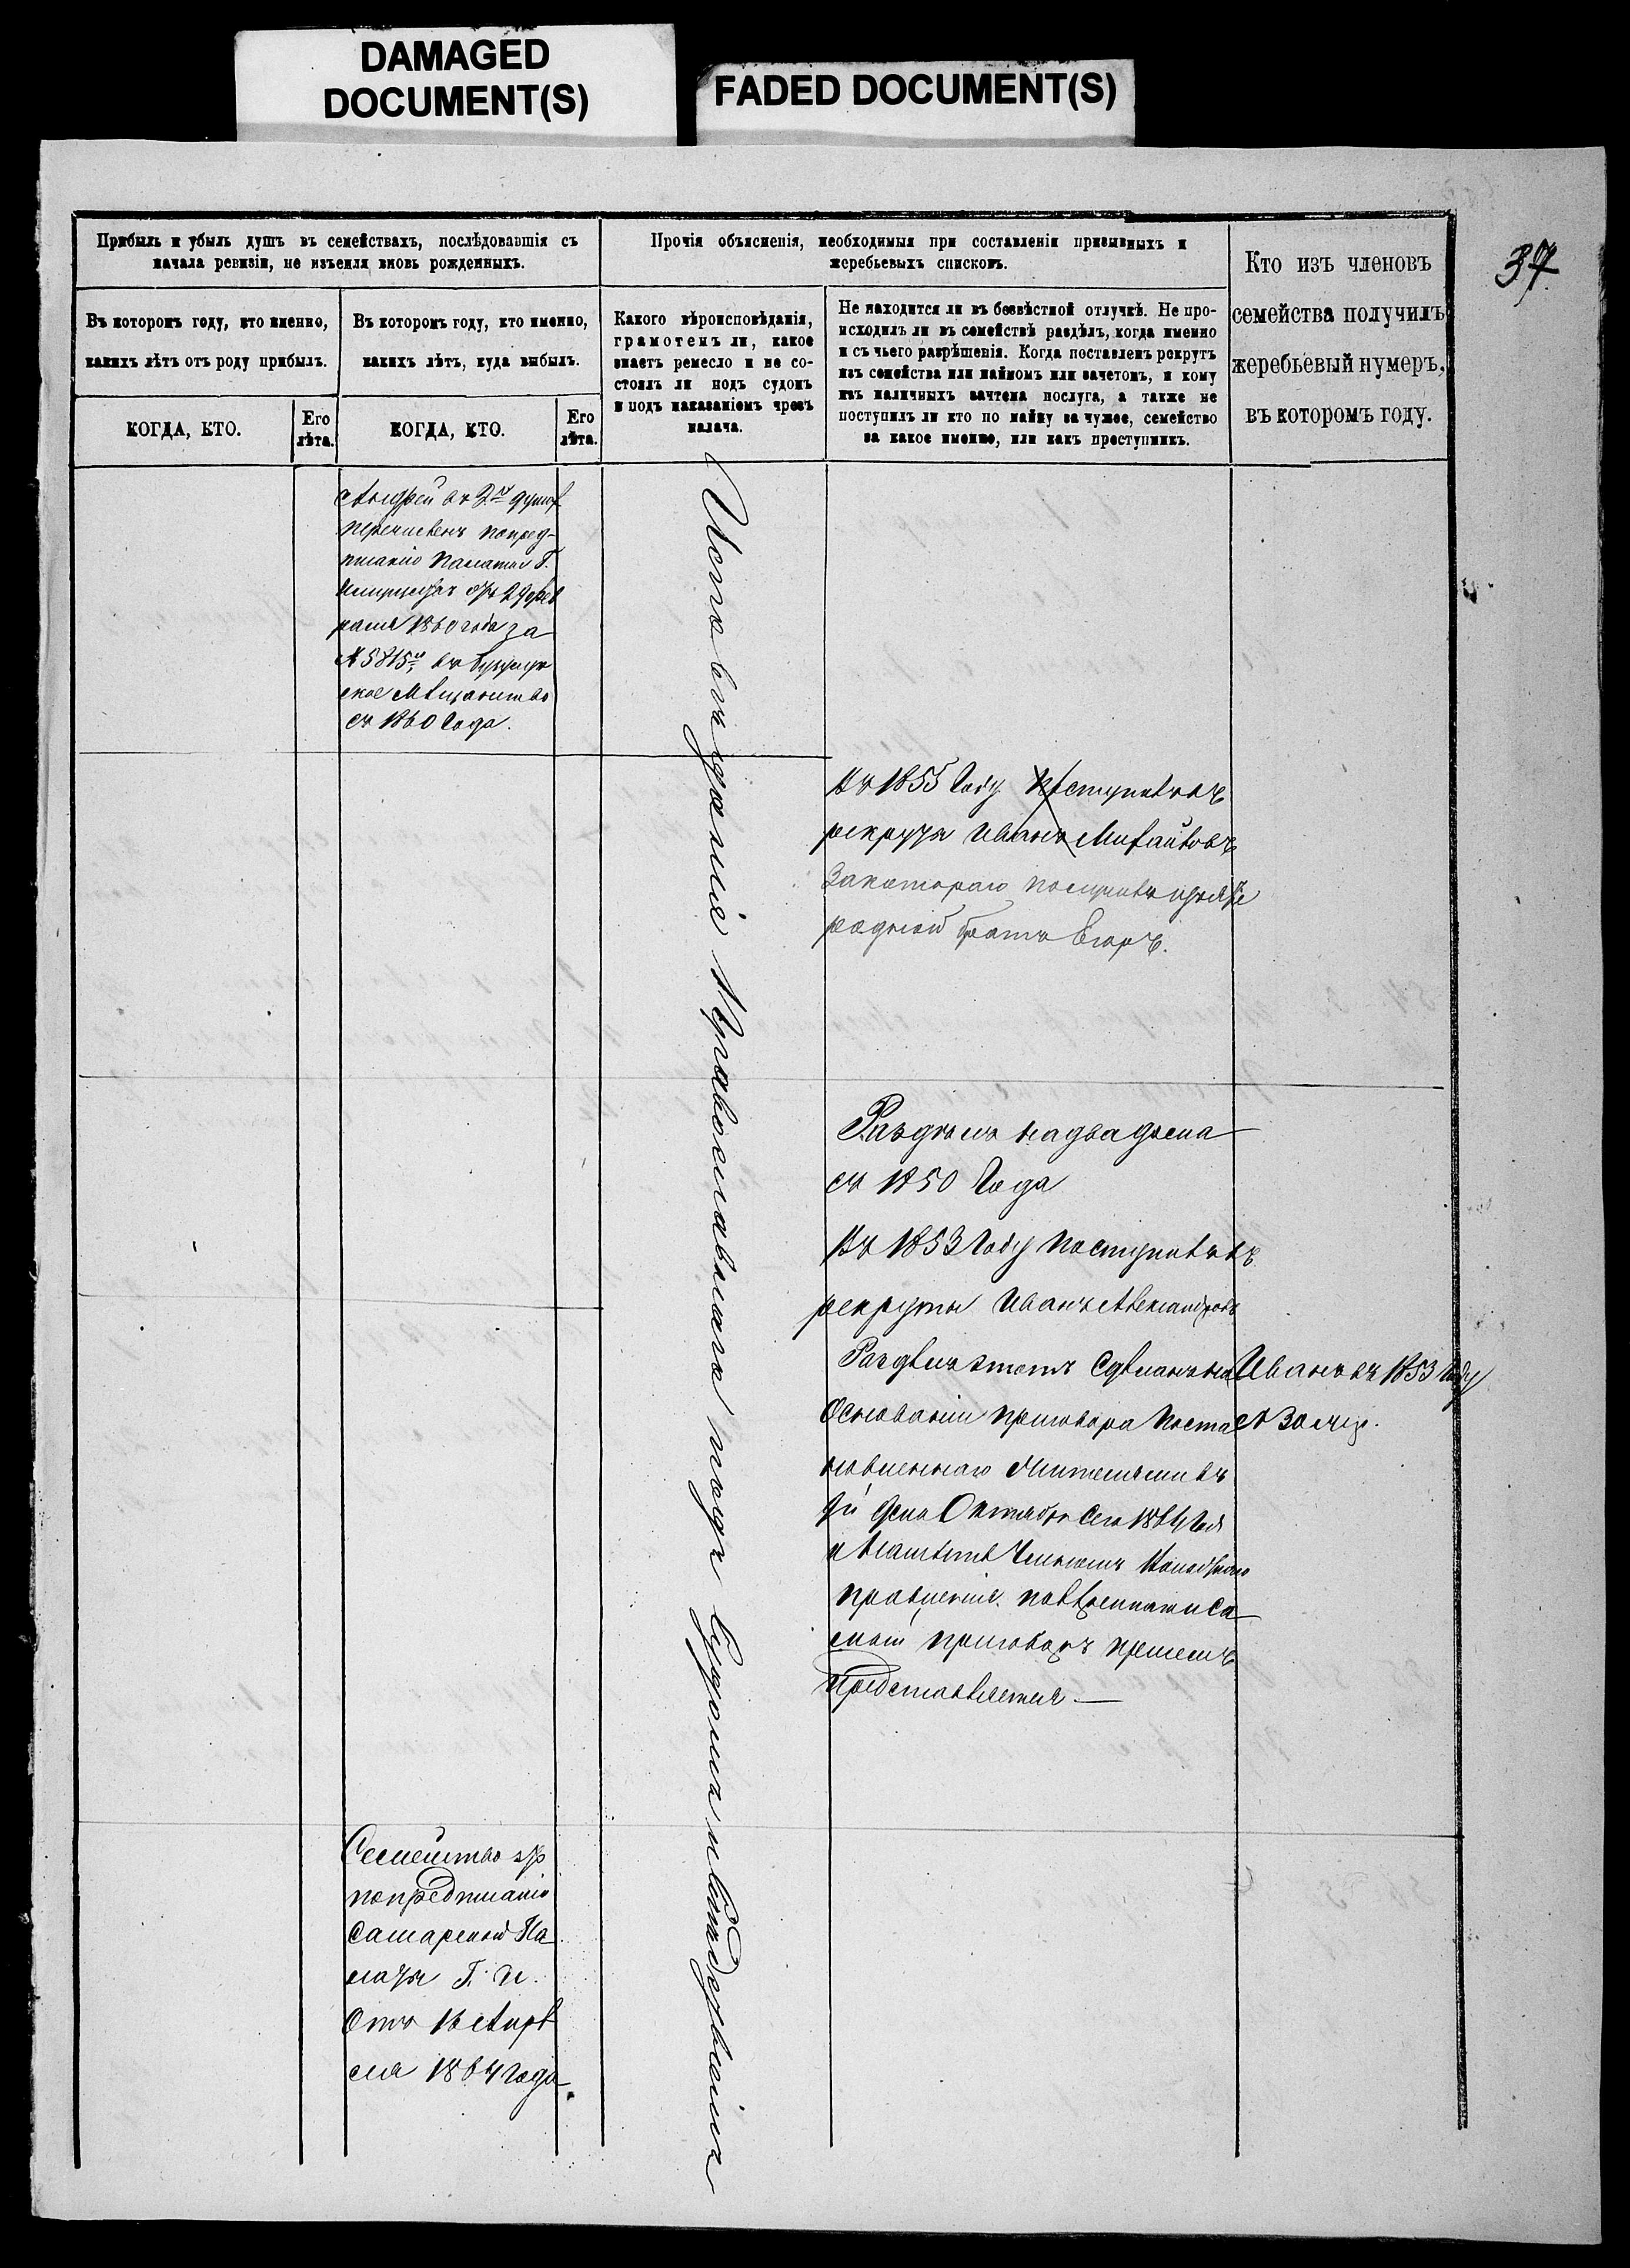 DAMAGED
DOCUMENT(S)
FADED DOCUMENT(S)
37
Прибыль и убыль душъ въ семействахъ, послѣдовавшія съ
начала ревизіи, не изъемля вновь рожденныхъ.
Прочія объясненія, необходимыя при составленіи призывныхъ и
жеребьевыхъ списковъ.
Кто изъ членовъ
семейства получилъ
жеребьевый нумеръ,
въ которомъ году.
Въ которомъ году, кто именно,
какихъ лѣтъ отъ роду прибылъ.
Въ которомъ году, кто именно,
какихъ лѣтъ, куда выбылъ.
Какого вѣроисповѣданія,
грамотенъ ли, какое
знаетъ ремесло и не со-
стоялъ ли подъ судомъ
и подъ наказаніемъ чрезъ
палача.
Не находится ли въ безвѣстной отлучкѣ. Не про-
исходилъ ли въ семействѣ раздѣлъ, когда именно
и съ чьего разрѣшенія. Когда поставленъ рекрутъ
изъ семейства или наймомъ или зачетомъ, и кому
изъ наличныхъ зачтена послуга, а также не
поступилъ ли кто по найму за чужое, семейство
за какое именно, или какъ преступникъ.
КОГДА, КТО.
Его
лѣта.
КОГДА, КТО.
Его
лѣта.
Андрей въ 2й душѣ
перечисленъ попред-
писанію Палаты Г.
Имуществъ отъ 29 фев
раля 1860 года за
№ 5815м въ Бузулук
ское Мѣщанство
съ 1860 Года.
Исповѣданія Православнаго подъ Судомъ и Слѣдствіемъ
Въ 1855 Году Поступилъ въ
рекруты Иванъ Михайловъ
Закотораго поступилъ
родной братъ Егоръ.
Раздѣлъ на два дома
съ 1850 Года
Въ 1853 Году Поступилъ въ
рекруты Иванъ Александровъ
Раздѣлъ этотъ Сдѣланъ на
Основаніи приговора Поста
новленнаго Жителями въ
день Октября Сего 1864 Года
Правленія.
мый приговоръ присемъ
представляется —
Иванъ въ 1853 Году
Семейство
попредписанію
Самарской Па
латы Г. И.
Отъ 18 Апрѣ
ля 1864 года.